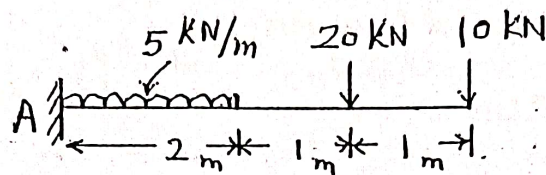 5 KN/m 20 KN 10 KN
A
2 m 1 m 1 m